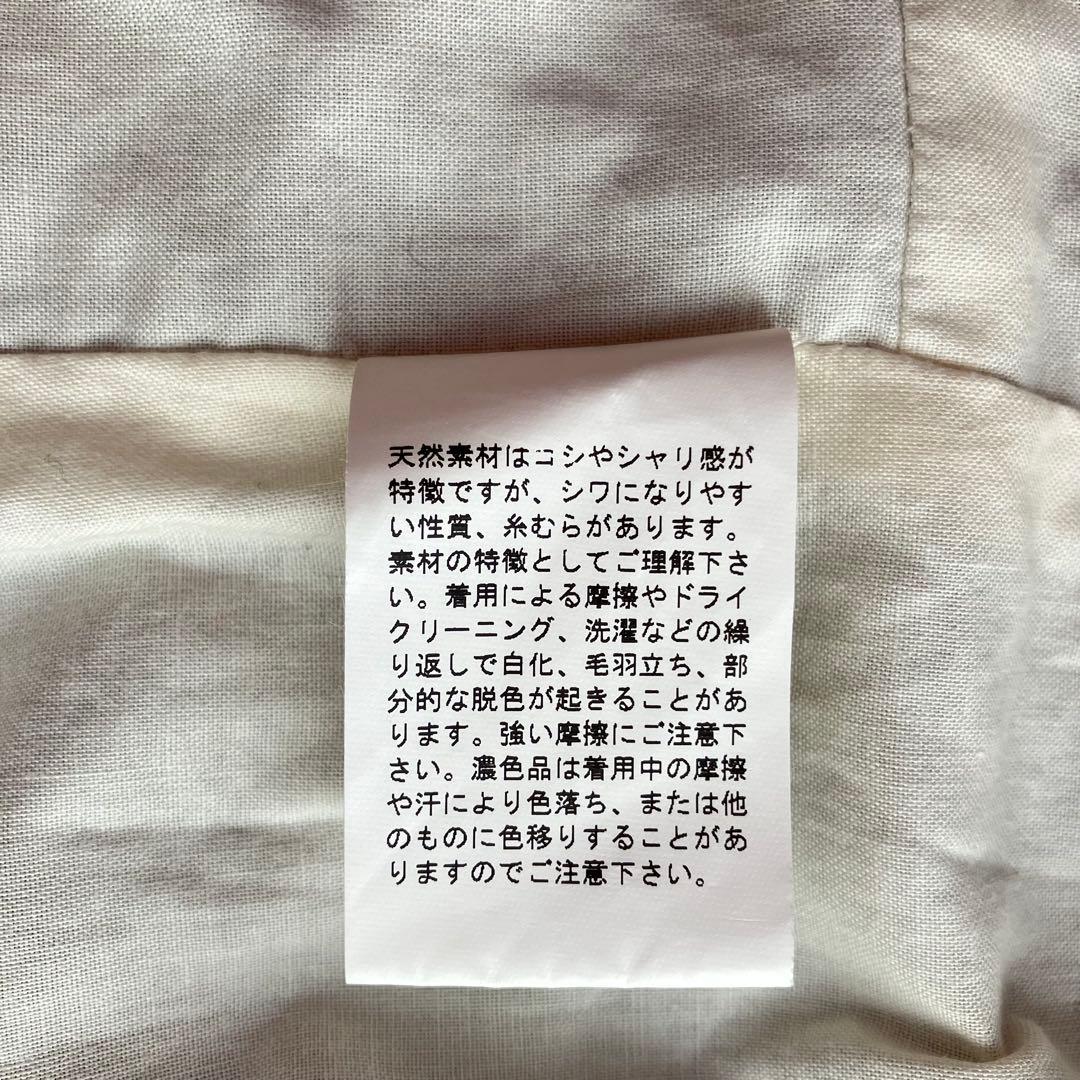 天然素材はコシやシャリ感が
特徴ですが、シワになりやす
い性質、糸むらがあります。
素材の特徴としてご理解下さ
い。着用による摩擦やドライ
クリーニング、洗濯などの繰
り返しで白化、毛羽立ち、部
分的な脱色が起きることがあ
ります。強い摩擦にご注意下
さい。濃色品は着用中の摩擦
や汗により色落ち、または他
のものに色移りすることがあ
りますのでご注意下さい。